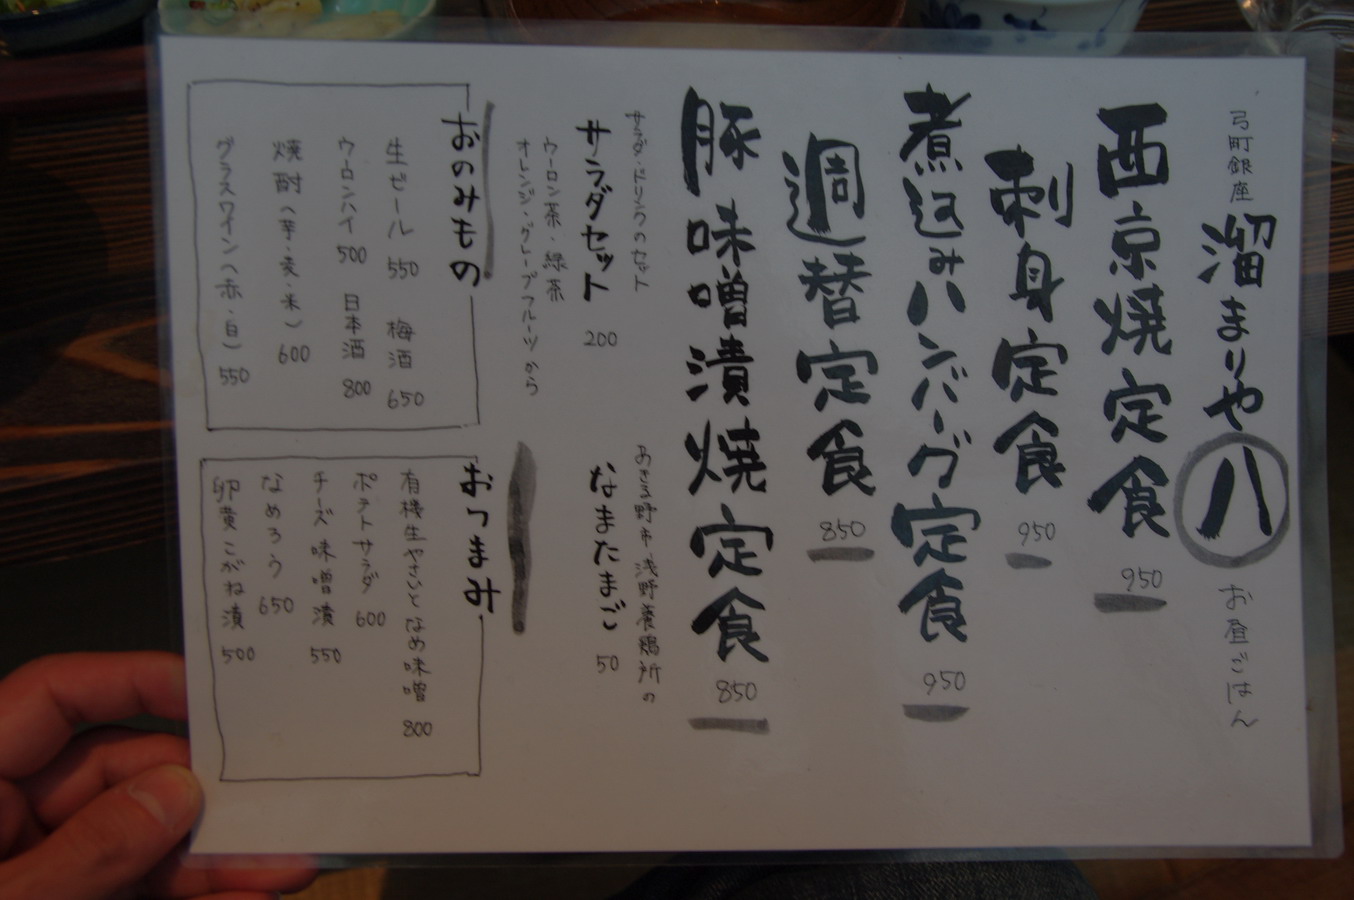 弓町銀座 溜まりや 八 お昼ごはん
西京焼定食 950
刺身定食 950
煮込みハンバーグ定食 950
週替定食 850
豚味噌漬焼定食 850
サラダ・ドリンクのセット
サラダセット 200
ウーロン茶・緑茶
オレンジ・グレープフルーツから
あきる野市 浅野養鶏所の
なまたまご 50
おのみもの
生ビール 550 梅酒 650
ウーロンハイ 500 日本酒 800
焼酎(芋・麦・米) 600
グラスワイン(赤・白) 550
おつまみ
有機生やさいとなめ味噌 800
ポテトサラダ 600
チーズ味噌漬 550
なめろう 650
卵黄こがね漬 500